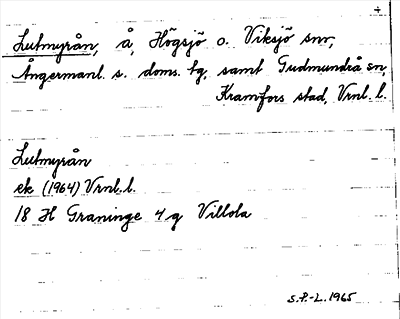 +
Lutmyrån, å, Högsjö o. Viksjö snr,
Ångermanl. s. doms. tg. samt Gudmundrå sn,
Kramfors stad, Vrnl. l.
Lutmyrån
ek (1964) Vrnl. l.
18 H Graninge 4 g Villola
S.P.-L. 1965